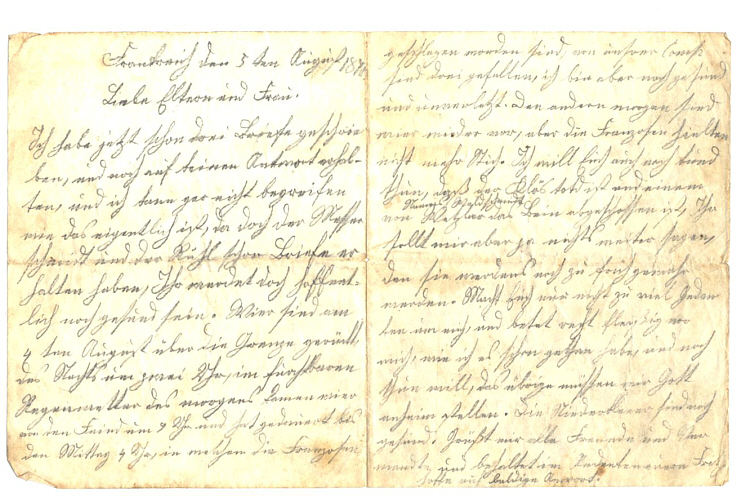 Frankreich den 5 ten August 1870
Liebe Eltern und Frau.
Ich habe jetzt schon drei Briefe geschrie
ben, und noch auf keinen Antwort erhal-
ten, und ich kann gar nicht begreifen
wie das eigentlich ist, da doch der Messer
schmidt und der Kühl schon Briefe er
halten haben, Ihr werdet doch hoffent-
lich noch gesund sein. Wier sind am
4 ten August über die Grenze gerückt,
des Nachts um zwei Uhr, im furchtbaren
Regenwetter des morgens kamen wier
an den Feind um 9 Uhr und hat gedauert bis
den Mittag 4 Uhr, in welchem die Franzosen
geschlagen worden sind, von unsrer Comp.
sind drei gefallen, ich bin aber noch gesund
und unverletzt. Den andern morgen sind
wier wieder vor, aber die Franzosen hielten
nicht mehr Stich. Ich will Euch auch noch kund
thun, daß der Klös tod ist und einem
von Wetzlar das Bein abgeschossen ist, Ihr
sollt mir aber ja nichts weiter sagen,
den sie werdens noch zu früh gewahr
werden. Macht Euch nur nicht zu viel Gedan
ken um mich, und betet recht fleißig vor
mich, wie ich es schon gethan habe, und noch
thun will, das übrige müssen wir Gott
anheim stellen. Die Niederkleeer sind noch
gesund. Grüßt mir alle Freunde und Ver
wandte und behaltet im Andenken euern
hoffe auf baldige Antwort.